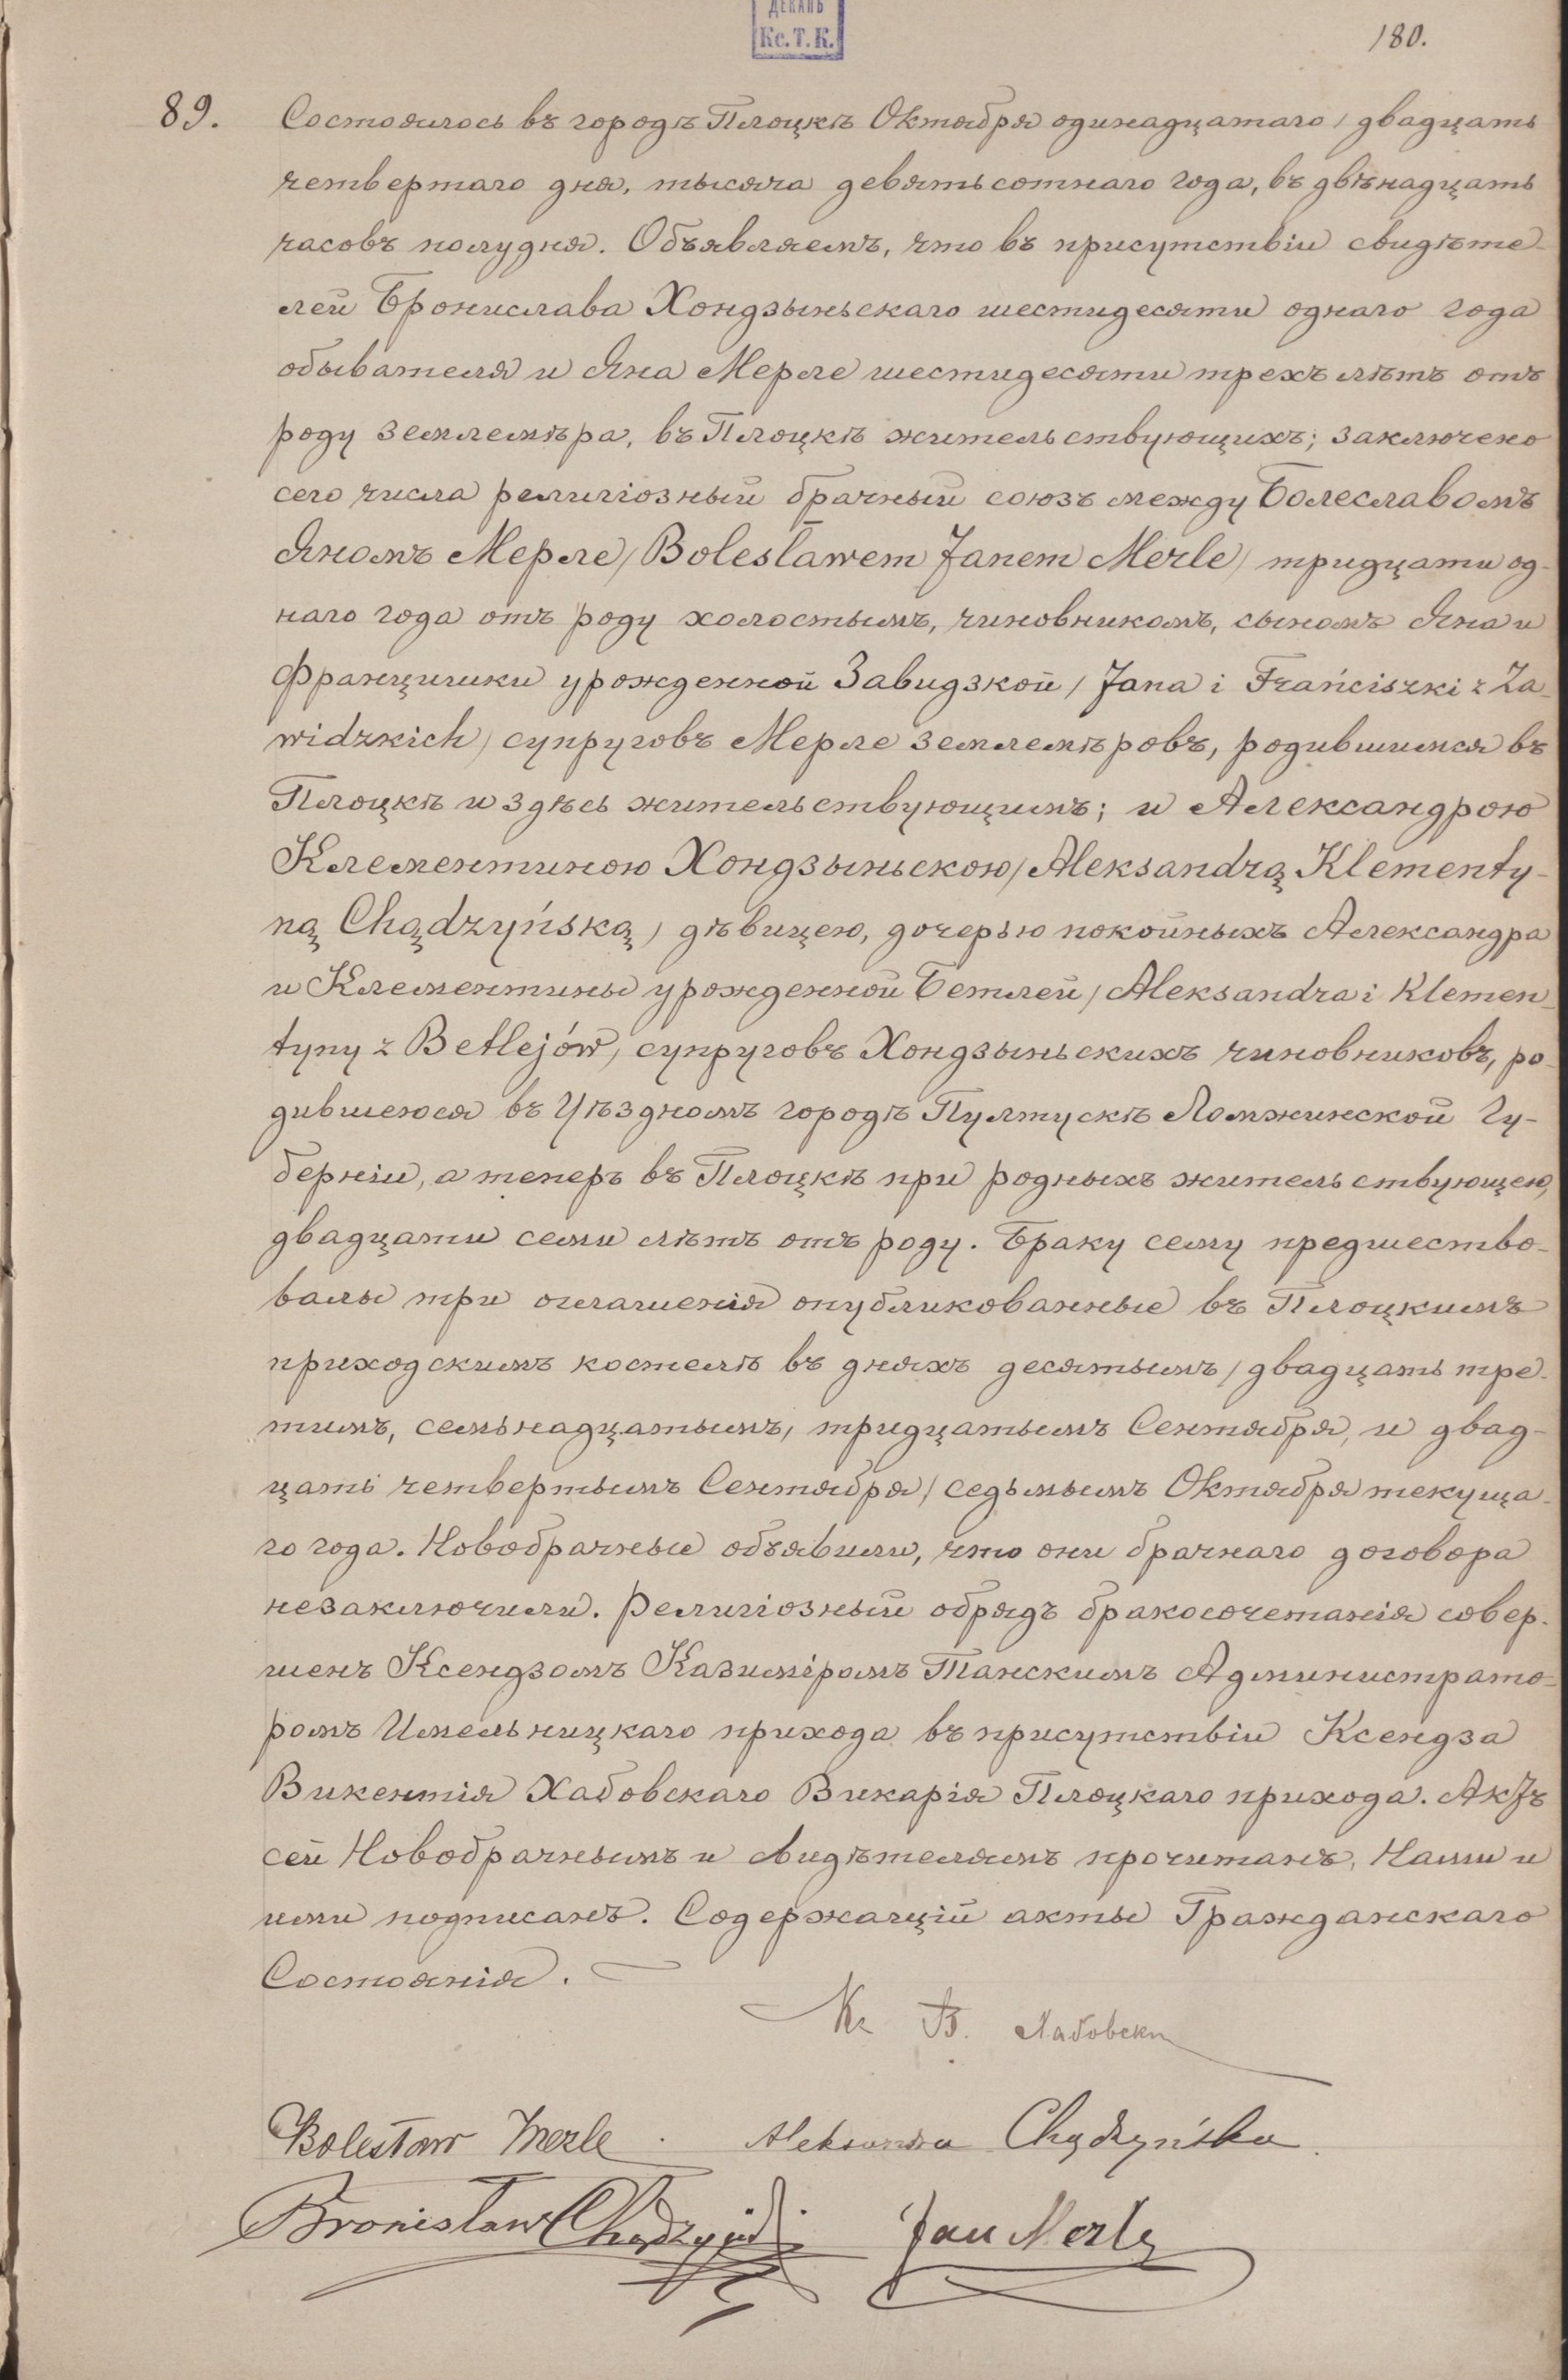 ДЕКАНЪ
Кс. Т. К.
180.
89. Состоялось въ городѣ Плоцкѣ Октября одинадцатаго / двадцать
четвертаго дня, тысяча девятьсотнаго года, въ двѣнадцать
часовъ полудня. Объявляемъ, что въ присутствіи свидѣте-
лей Бронислава Хондзыньскаго шестидесяти однаго года
обывателя и Яна Мерле шестидесяти трехъ лѣтъ отъ
роду землемѣра, въ Плоцкѣ жительствующихъ; заключено
сего числа религіозный брачный союзъ между Болеславомъ
Яномъ Мерле / Bolesławem Janem Merle / тридцати од-
наго года отъ роду холостымъ, чиновникомъ, сыномъ Яна и
Францишки урожденной Завидзкой / Jana i Franciszki z Za-
widzkich / супруговъ Мерле землемѣровъ, родившимся въ
Плоцкѣ и здѣсь жительствующимъ; и Александрою
Клементиною Хондзыньскою / Aleksandrą Klementy-
ną Chądzyńską / дѣвицею, дочерью покойныхъ Александра
и Клементины урожденной Бетлей / Aleksandra i Klemen-
tyny z Betlejów / супруговъ Хондзыньскихъ чиновниковъ, ро-
дившеюся въ Уѣздномъ городѣ Пултускѣ Ломжинской Гу-
берніи, а теперъ въ Плоцкѣ при родныхъ жительствующею,
двадцати семи лѣтъ отъ роду. Браку сему предшество-
валы три оглашенія опубликованные въ Плоцкимъ
приходскимъ костелѣ въ дняхъ десятымъ / двадцать тре-
тимъ, семьнадцатымъ / тридцатымъ Сентября, и двад-
цать четвертымъ Сентября / седьмымъ Октября текуща-
го года. Новобрачные объявили, что они брачнаго договора
незаключили. Религіозный обрядъ бракосочетанія совер-
шенъ Ксендзомъ Казиміромъ Танскимъ Администрато-
ромъ Имельницкаго прихода въ присутствіи Ксендза
Викентія Хабовскаго Викарія Плоцкаго прихода. Актъ
сей Новобрачнымъ и свидѣтелямъ прочитанъ, Нами и
ими подписанъ. Содержащій акты Гражданскаго
Состоянія.
Кс В. Хабовски
Bolesław Merle. Aleksandra Chądzyńska.
Bronisław Chądzyński Jan Merle